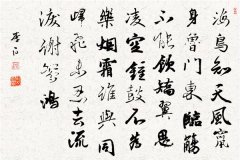 海鳥知天風竄
身魯門東臨觴
不能飲矯翼思
凌空鐘鼓不為
樂煙霜誰與同
歸飛未忍去流
淚謝鴛鴻